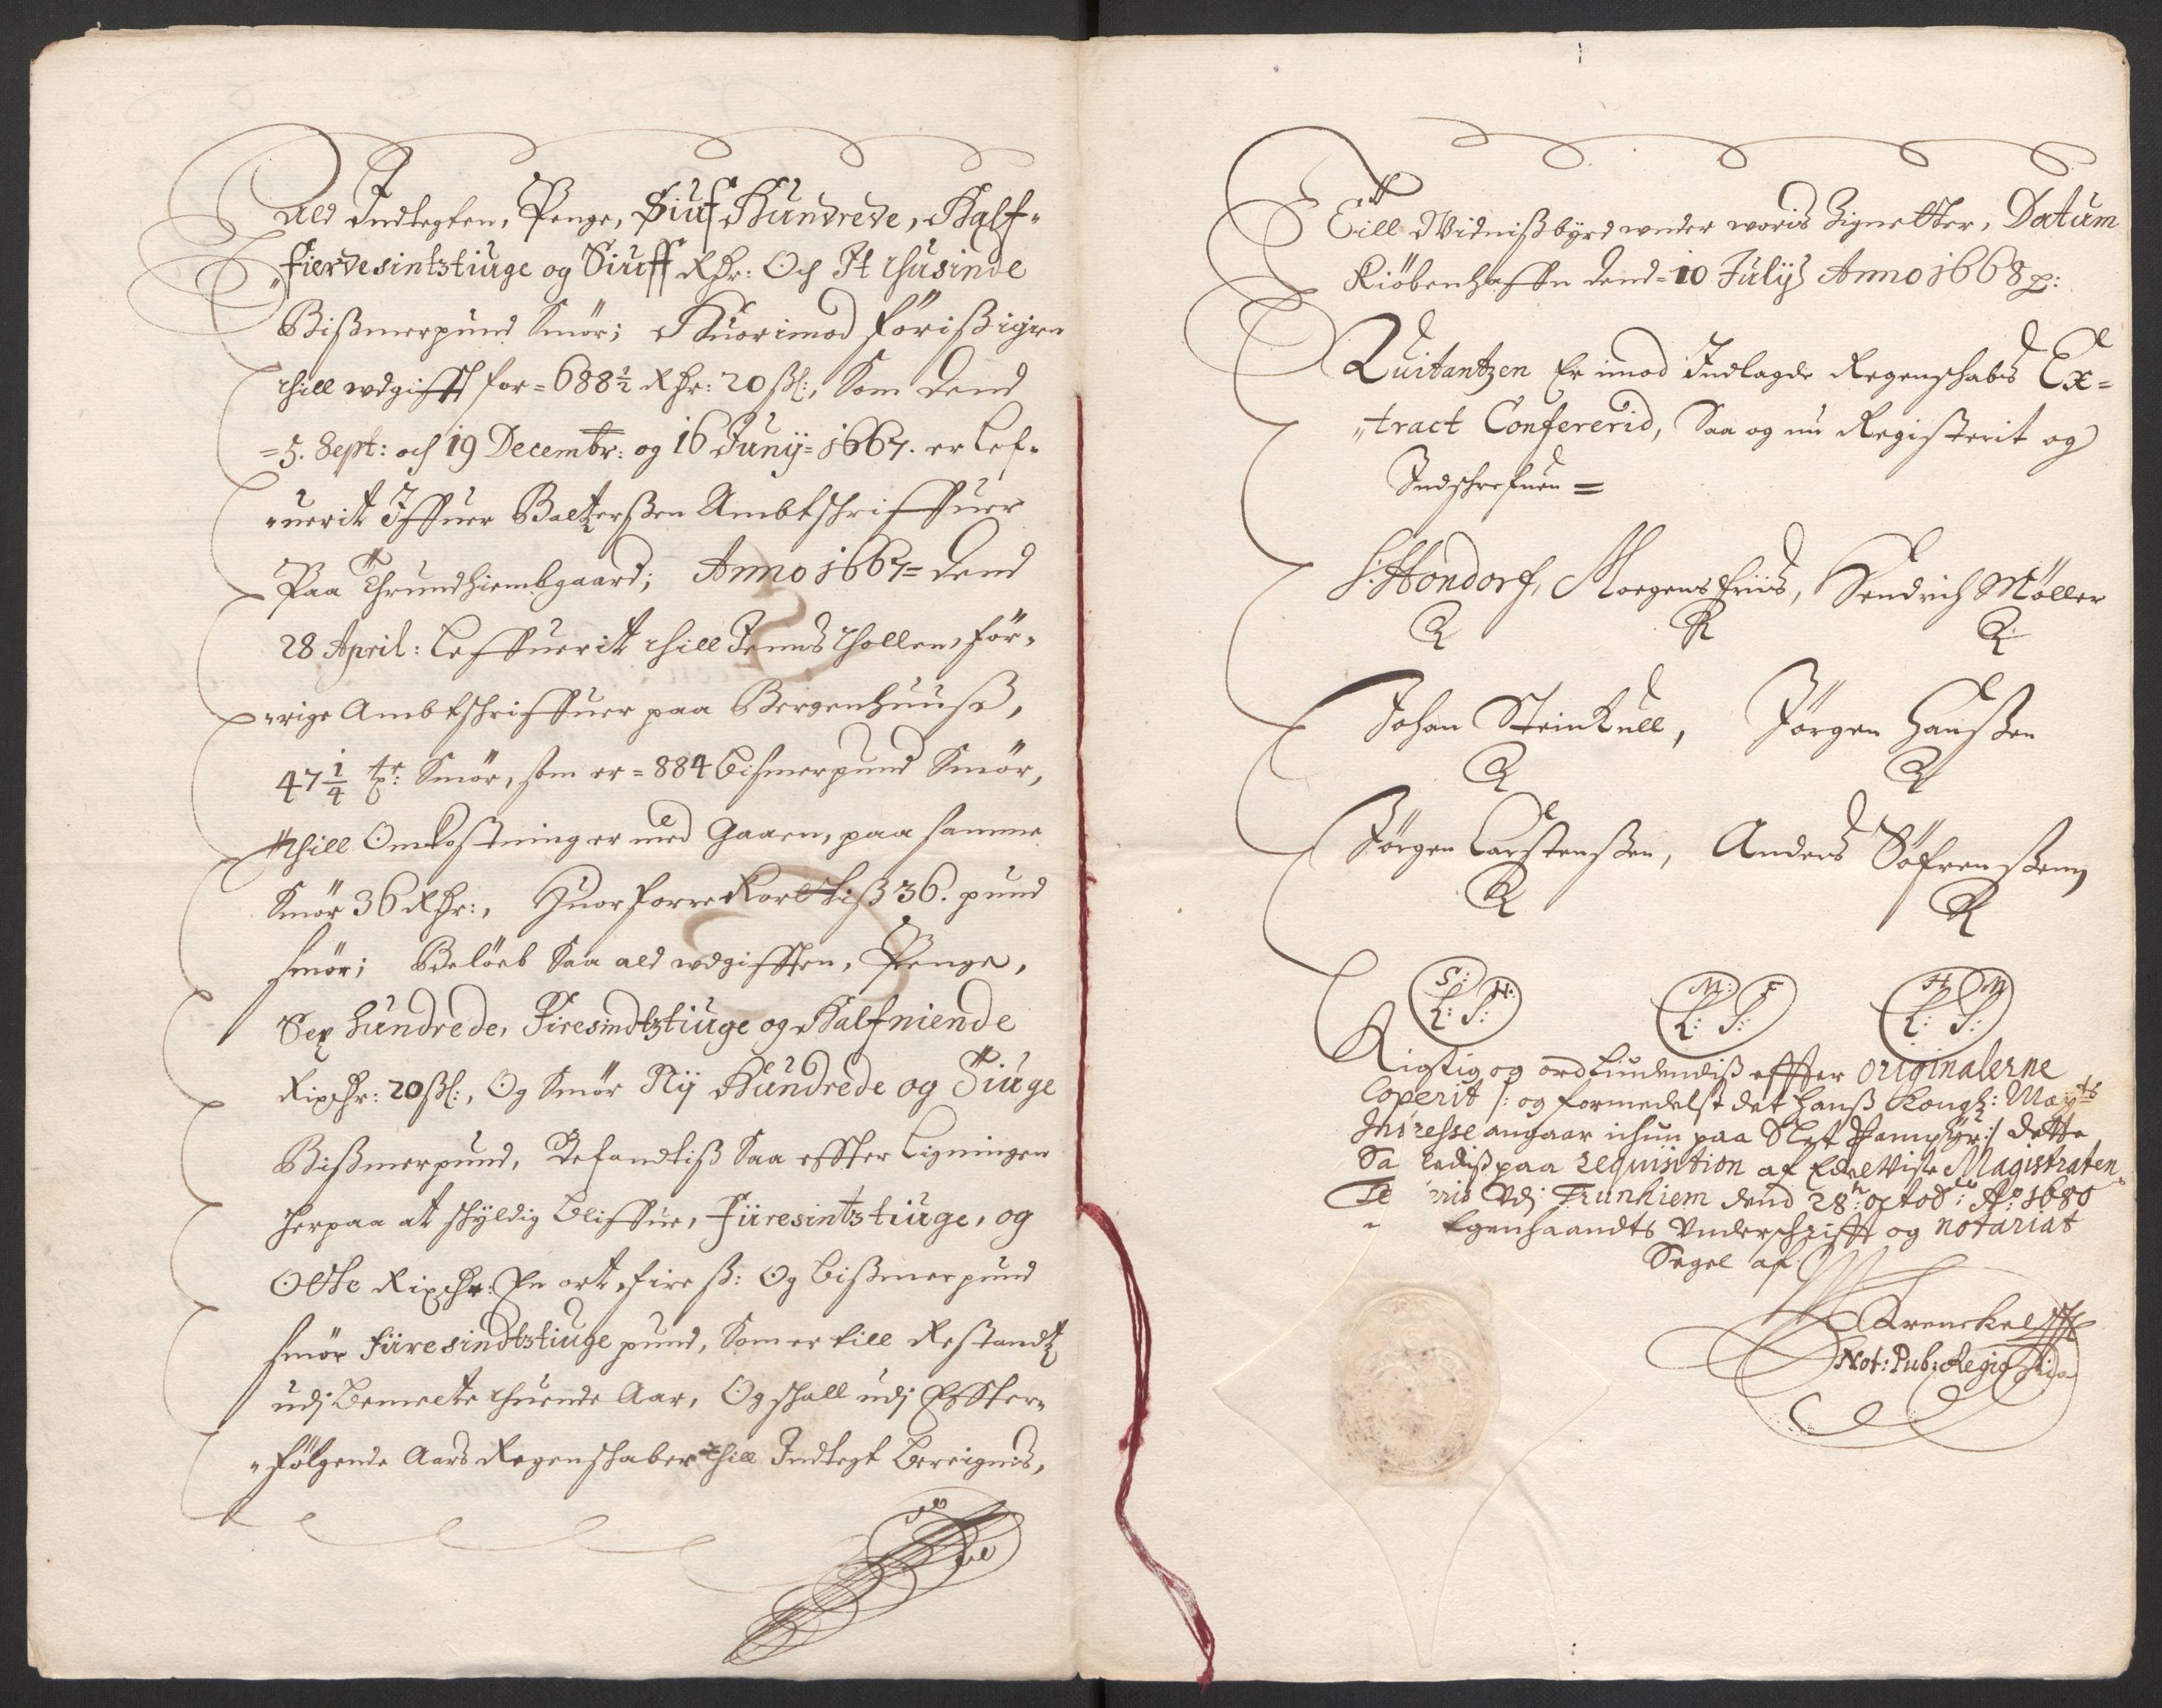 Ald Indtegten, Penge, Siuf Hundrede, Half-
„fierdesintztiuge og Siuff Rdr: Och It thusinde
Bißmerpund Smör; Huorimod förißigien
thill wdgifft for = 688½ Rdr: 20 ßl:, Som Dend
=5. Sept: och 19 Decembr: og 16 Junij = 1667. er Lef-
„uerit Iffuer Baltzerßen Ambtschriffuer
Paa Thrundhiembgaard; Anno 1667= Dend
28 April: Leffuerit thill Jenns thollen, för-
„rige Ambtschriffuer paa Bergenhuuß,
47¼ tr: Smör, som er = 884 bismerpund Smör,
thill Omkostninger med Gaaen, paa samme
Smör 36 Rdr:, Huorforre kortis 36. pund
smör; Beløeb Saa ald wdgifften, Penge,
Sex hundrede, Firesindtztiuge og Halfniende
Rixdr: 20 ßl:, Og Smör Nij Hundrede og Tiuge
Bißmerpund, Befandtiß Saa effter Ligningen
herpaa at schyldig bliffue, fiiresintztiuge, og
Otte Rixdr: En ort, fire ß: Og bißmerpund
smör fiiresindtztiuge pund, Som er till Restandtz
udj bemelte thuende Aar, Og schall udj Effter-
„fölgende Aars Regenschaber thill Indtegt bereignis,
Till Widnißbyrd under woris Zignetter, Datum
Kiöbenhaffn Dend = 10 Julij Anno 1668 p:
Quitantzen Er imod Indlagde Regenschabs Ex=
„tract Confererid, Saa og nu Registerit og
Indschrefuen =
S: Hondorf, Moegens friis, Hendrich Møller
Johan SteinKull, Jörgen Hanßen
Jörgen Carstenßen, Anders Söfrenßenn
S: H: L: S:
M: F L: S:
H M L: S:
Rigtig og ord Liudendiß effter originalerne
Coperit /: og formedelst det hanß Kongl: Mayts
Interesse angaar ichun paa Slet Pampyr :/ dette
Sa ledis paa requisition af Edle Wise Magistraten
Te ris Udj Trunhiem dend 28 octob: Ao: 1680
Egenhaandts Underschrifft og notariat
Segel af
Krenckel
Not: Pub: Regig